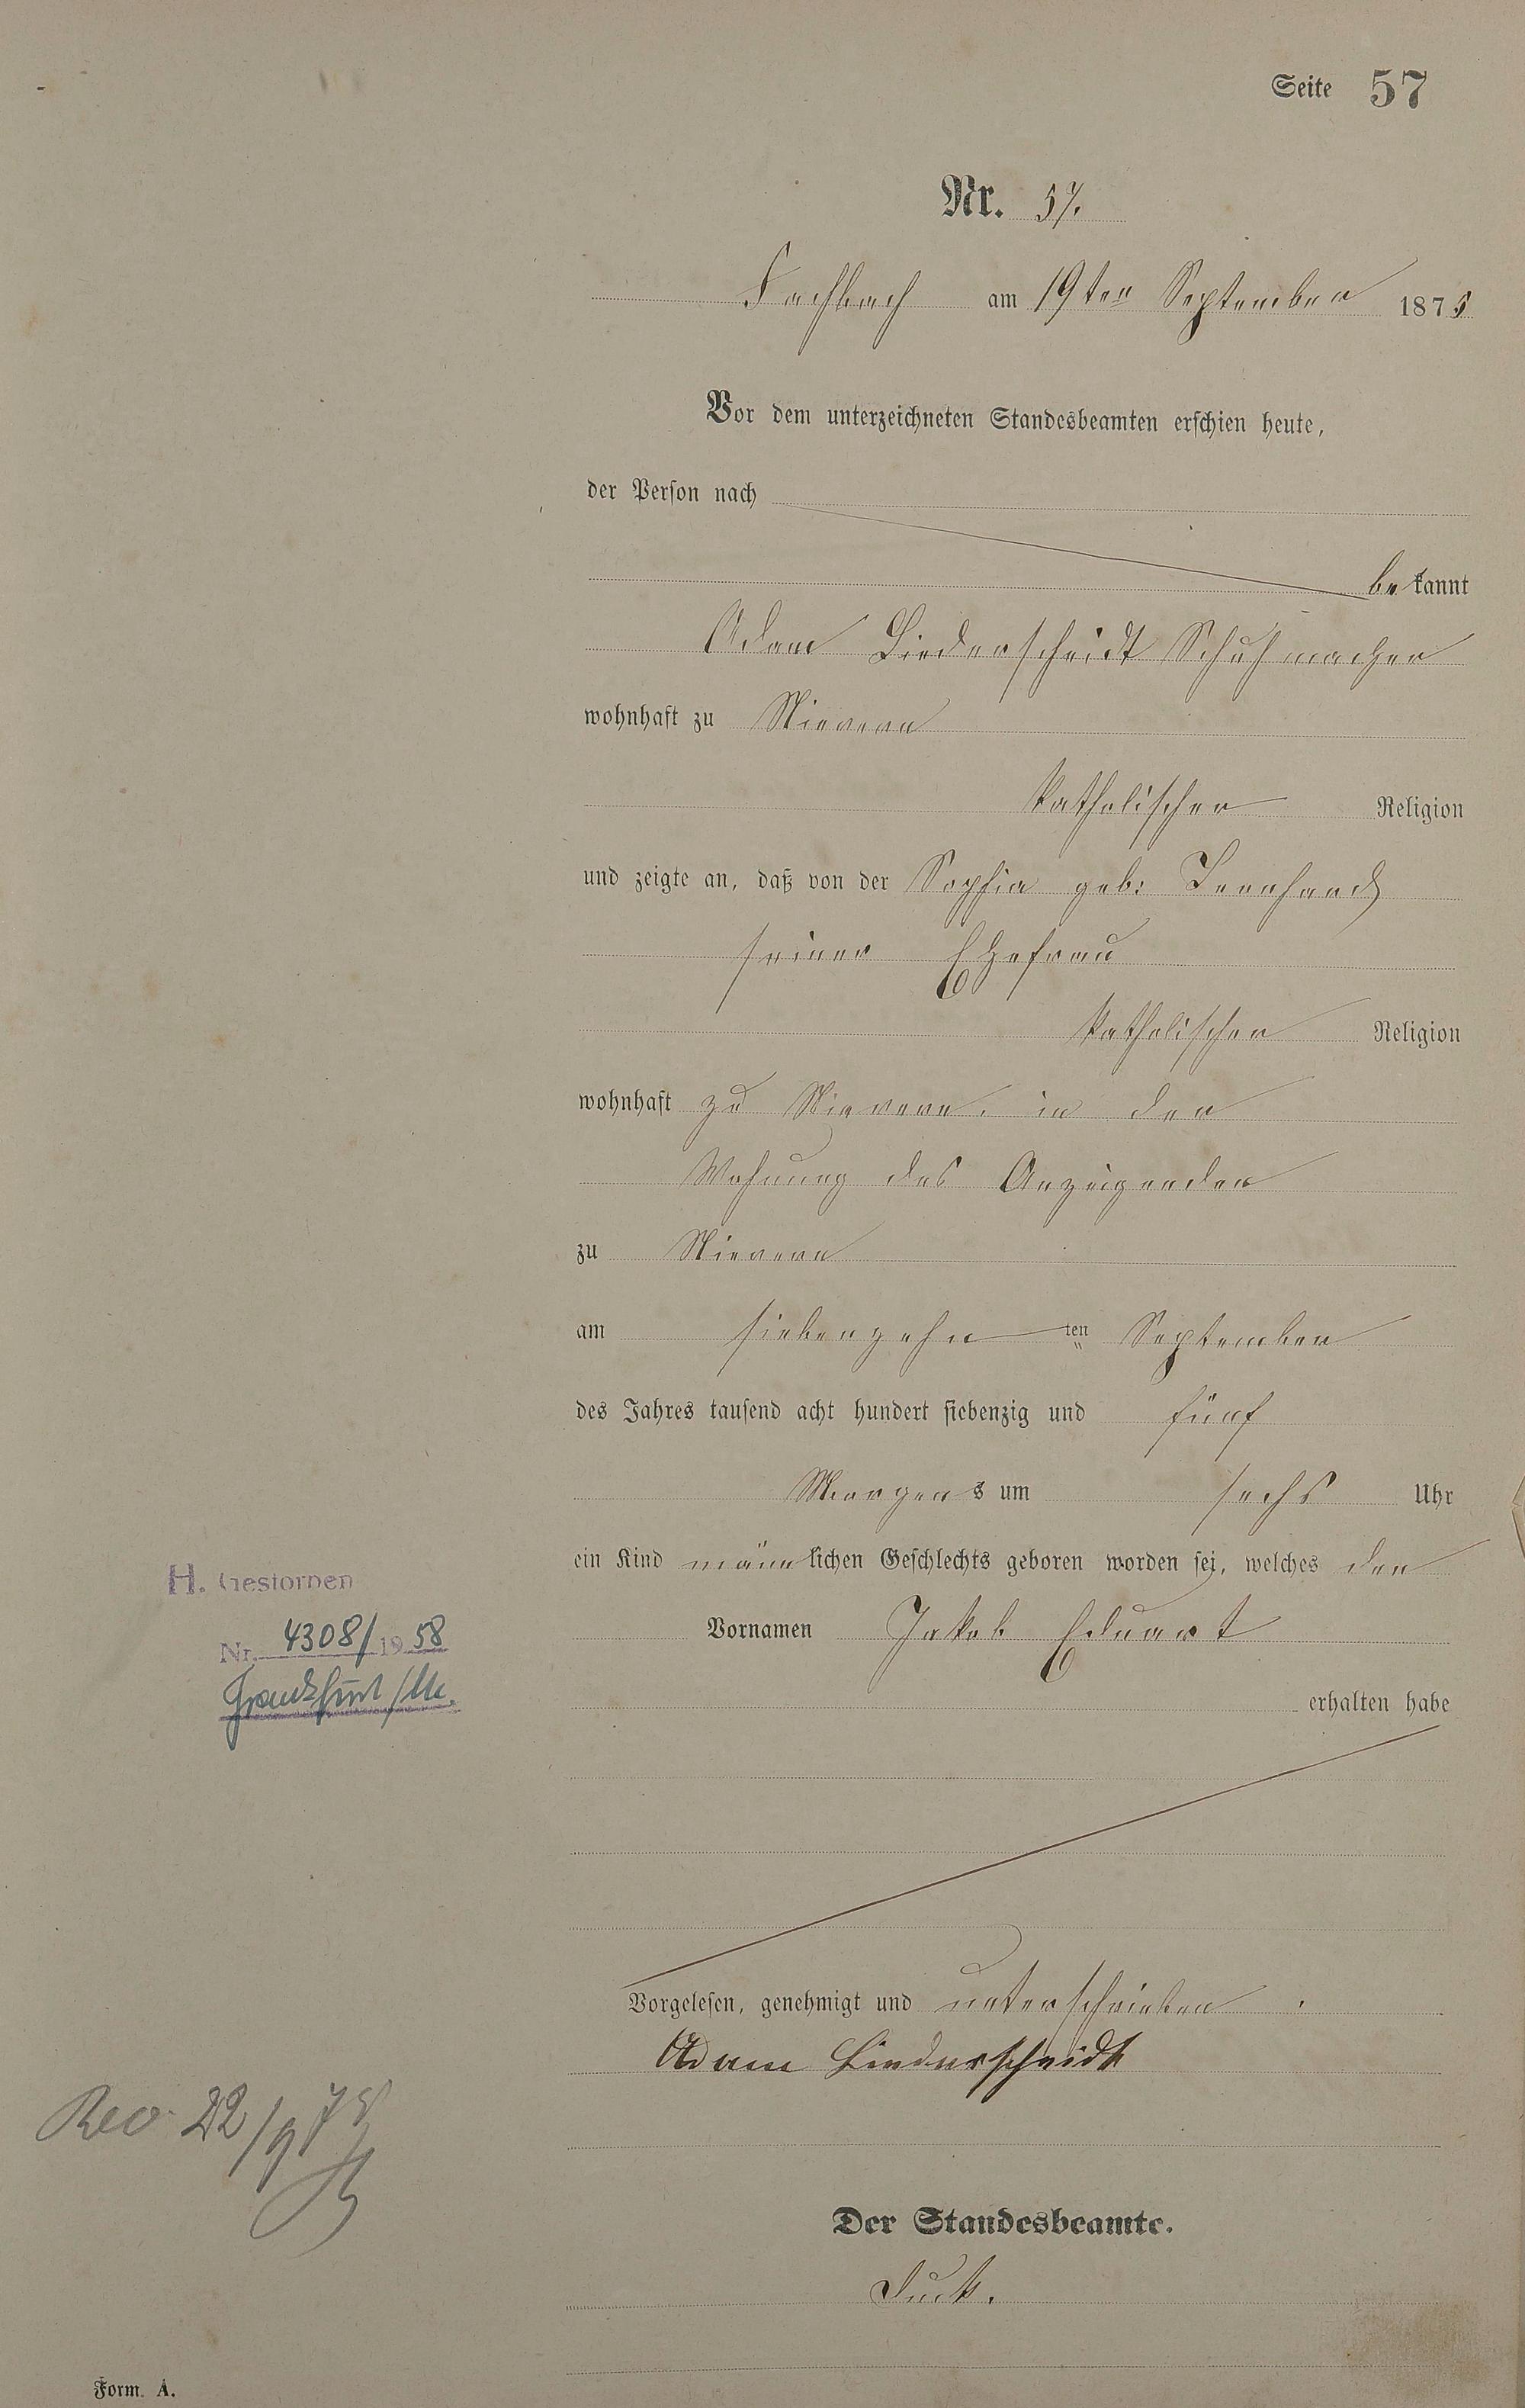 Seite 57
Nr. 57.
Fachbach am 19ten September 1875
Vor dem unterzeichneten Standesbeamten erschien heute,
der Person nach
bekannt
Adam Liederscheidt Schuhmacher
wohnhaft zu Nievern
katholischer Religion
und zeigte an, daß von der Sophia geb:
seiner Ehefrau
katholischer Religion
wohnhaft zu Nievern, in der
Wohnung des Anzeigenden
zu Nievern
am siebenzehnten September
des Jahres tausend acht hundert siebenzig und fünf
Morgens um sechs Uhr
ein Kind männlichen Geschlechts geboren worden sei, welches den
Vornamen Jakob Eduart
erhalten habe
H. Gestorben
Nr. 4308/1958
Frankfurt/M.
Vorgelesen, genehmigt und unterschrieben.
Adam Liederscheidt
Rev. 22/9 75
Der Standesbeamte.
Form. A.